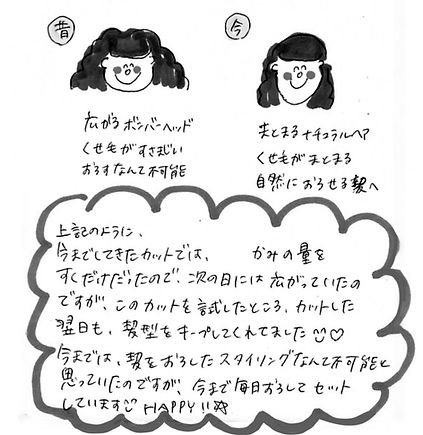 昔
今
広がるボンバーヘッド
くせ毛がすさまじい
おろすなんて不可能
まとまるナチュラルヘア
くせ毛がまとまる
自然におろせる髪へ
上記のように、
今までしてきたカットでは、 かみの量を
すくだけだったので、次の日には広がっていたの
ですが、このカットを試したところ、カットした
翌日も、髪型をキープしてくれてました♡
今までは、髪をおろしたスタイリングなんて不可能と
思っていたのですが、今まで毎日おろしてセット
しています HAPPY!!☆